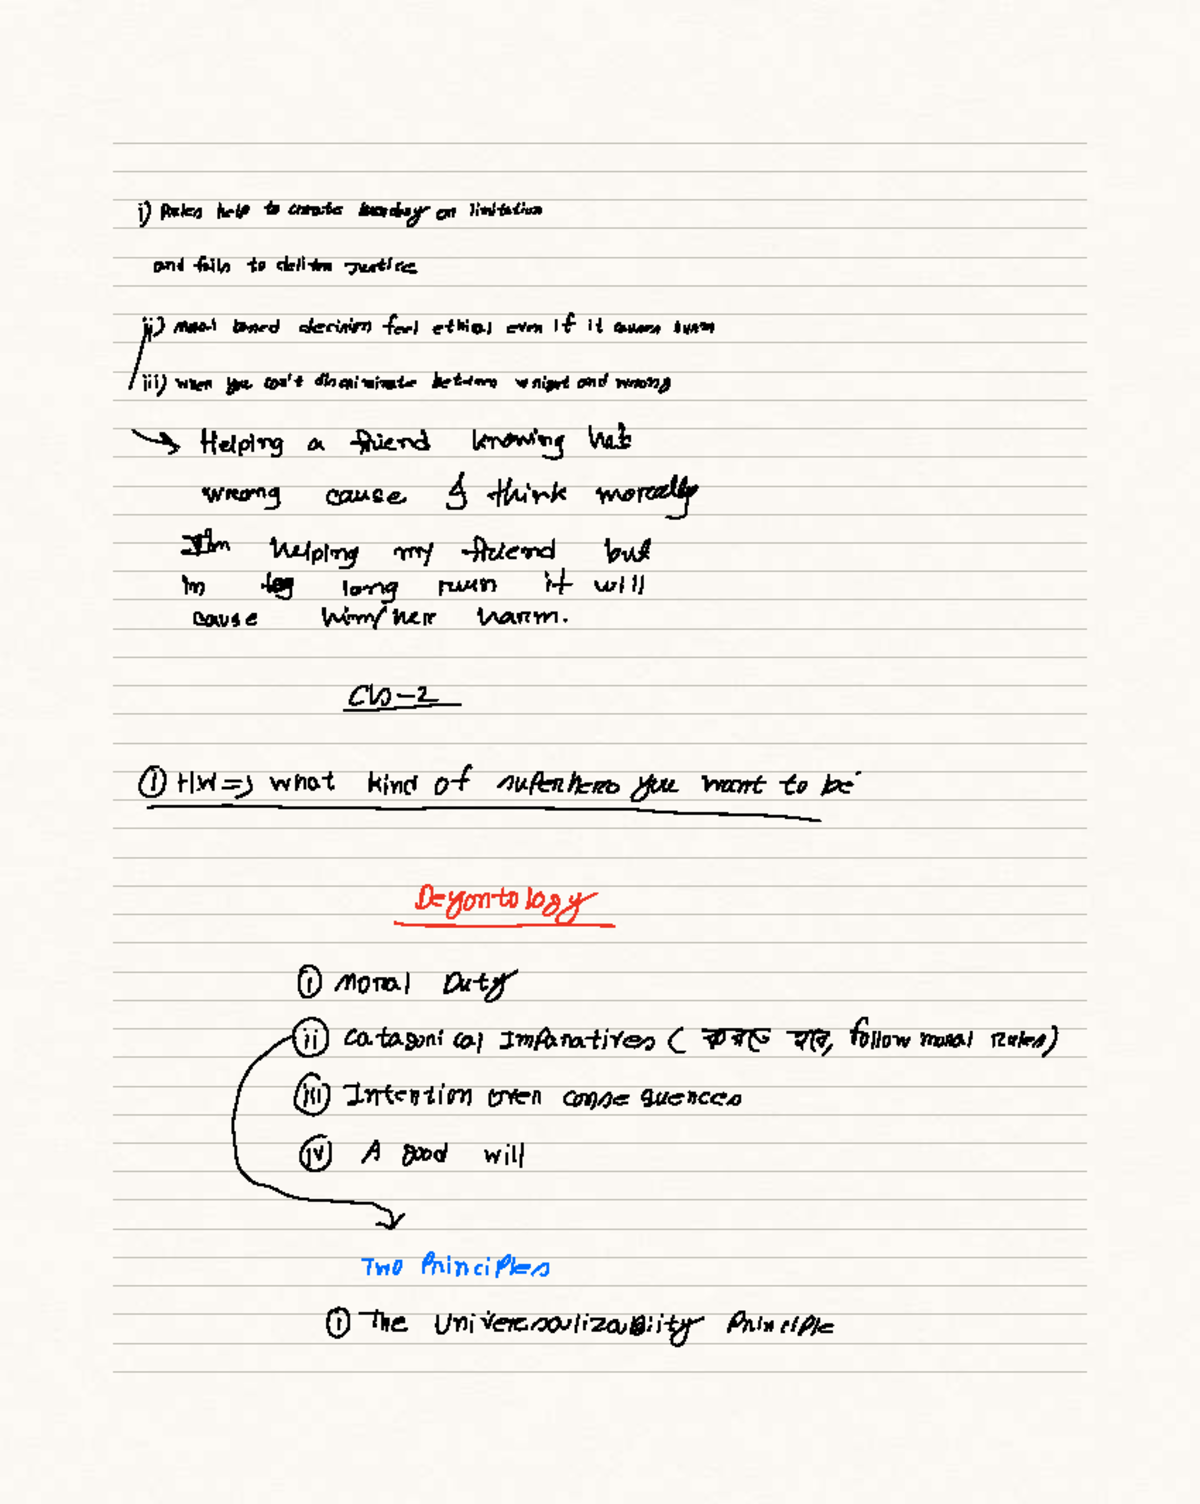 i) Rules help to create boundary or limitation
and fails to deliver justice
ii) moral based decision feel ethical even if it causes harm
iii) when you can't discriminate between right and wrong
→ Helping a friend knowing hat
wrong cause I think morally
I'm helping my friend but
in long run it will
cause him/her harm.
CW-2
① HW => what kind of superhero you want to be
Deyontology
① moral Duty
ⅱ catagorical Imparatives ( করতে হবে, follow moral Rules)
ⅲ Intention over consequences
ⅳ A good will
Two Principles
① The Universalizability Principle